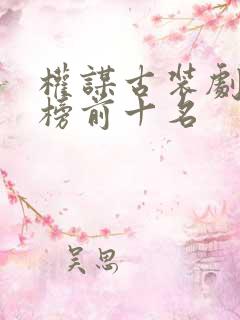 權謀古裝劇
榜前十名
吳思